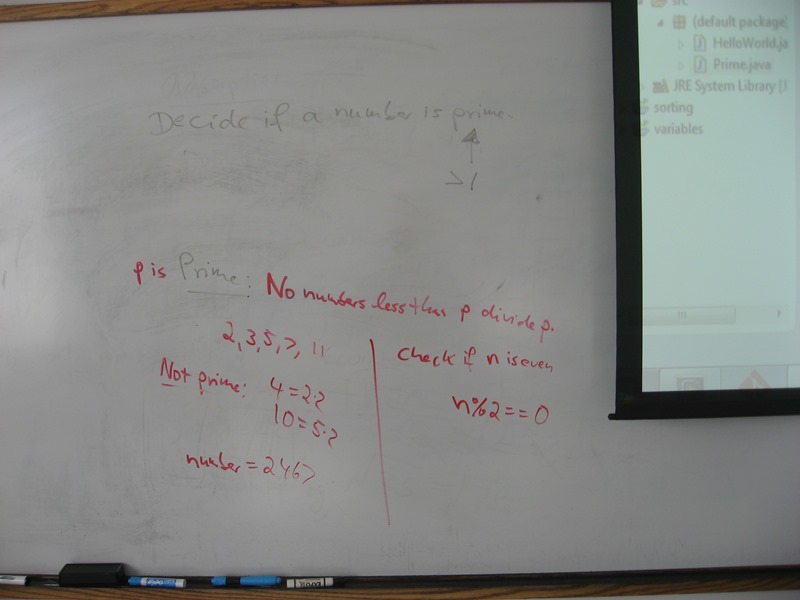 Decide if a number is prime.
>1
p is Prime: No numbers less than p divide p.
2, 3, 5, 7, 11
Not prime: 4 = 2·2
10 = 5·2
number = 2467
check if n is even
n%2 == 0
src
(default package)
HelloWorld.ja
Prime.java
JRE System Library [J
sorting
variables